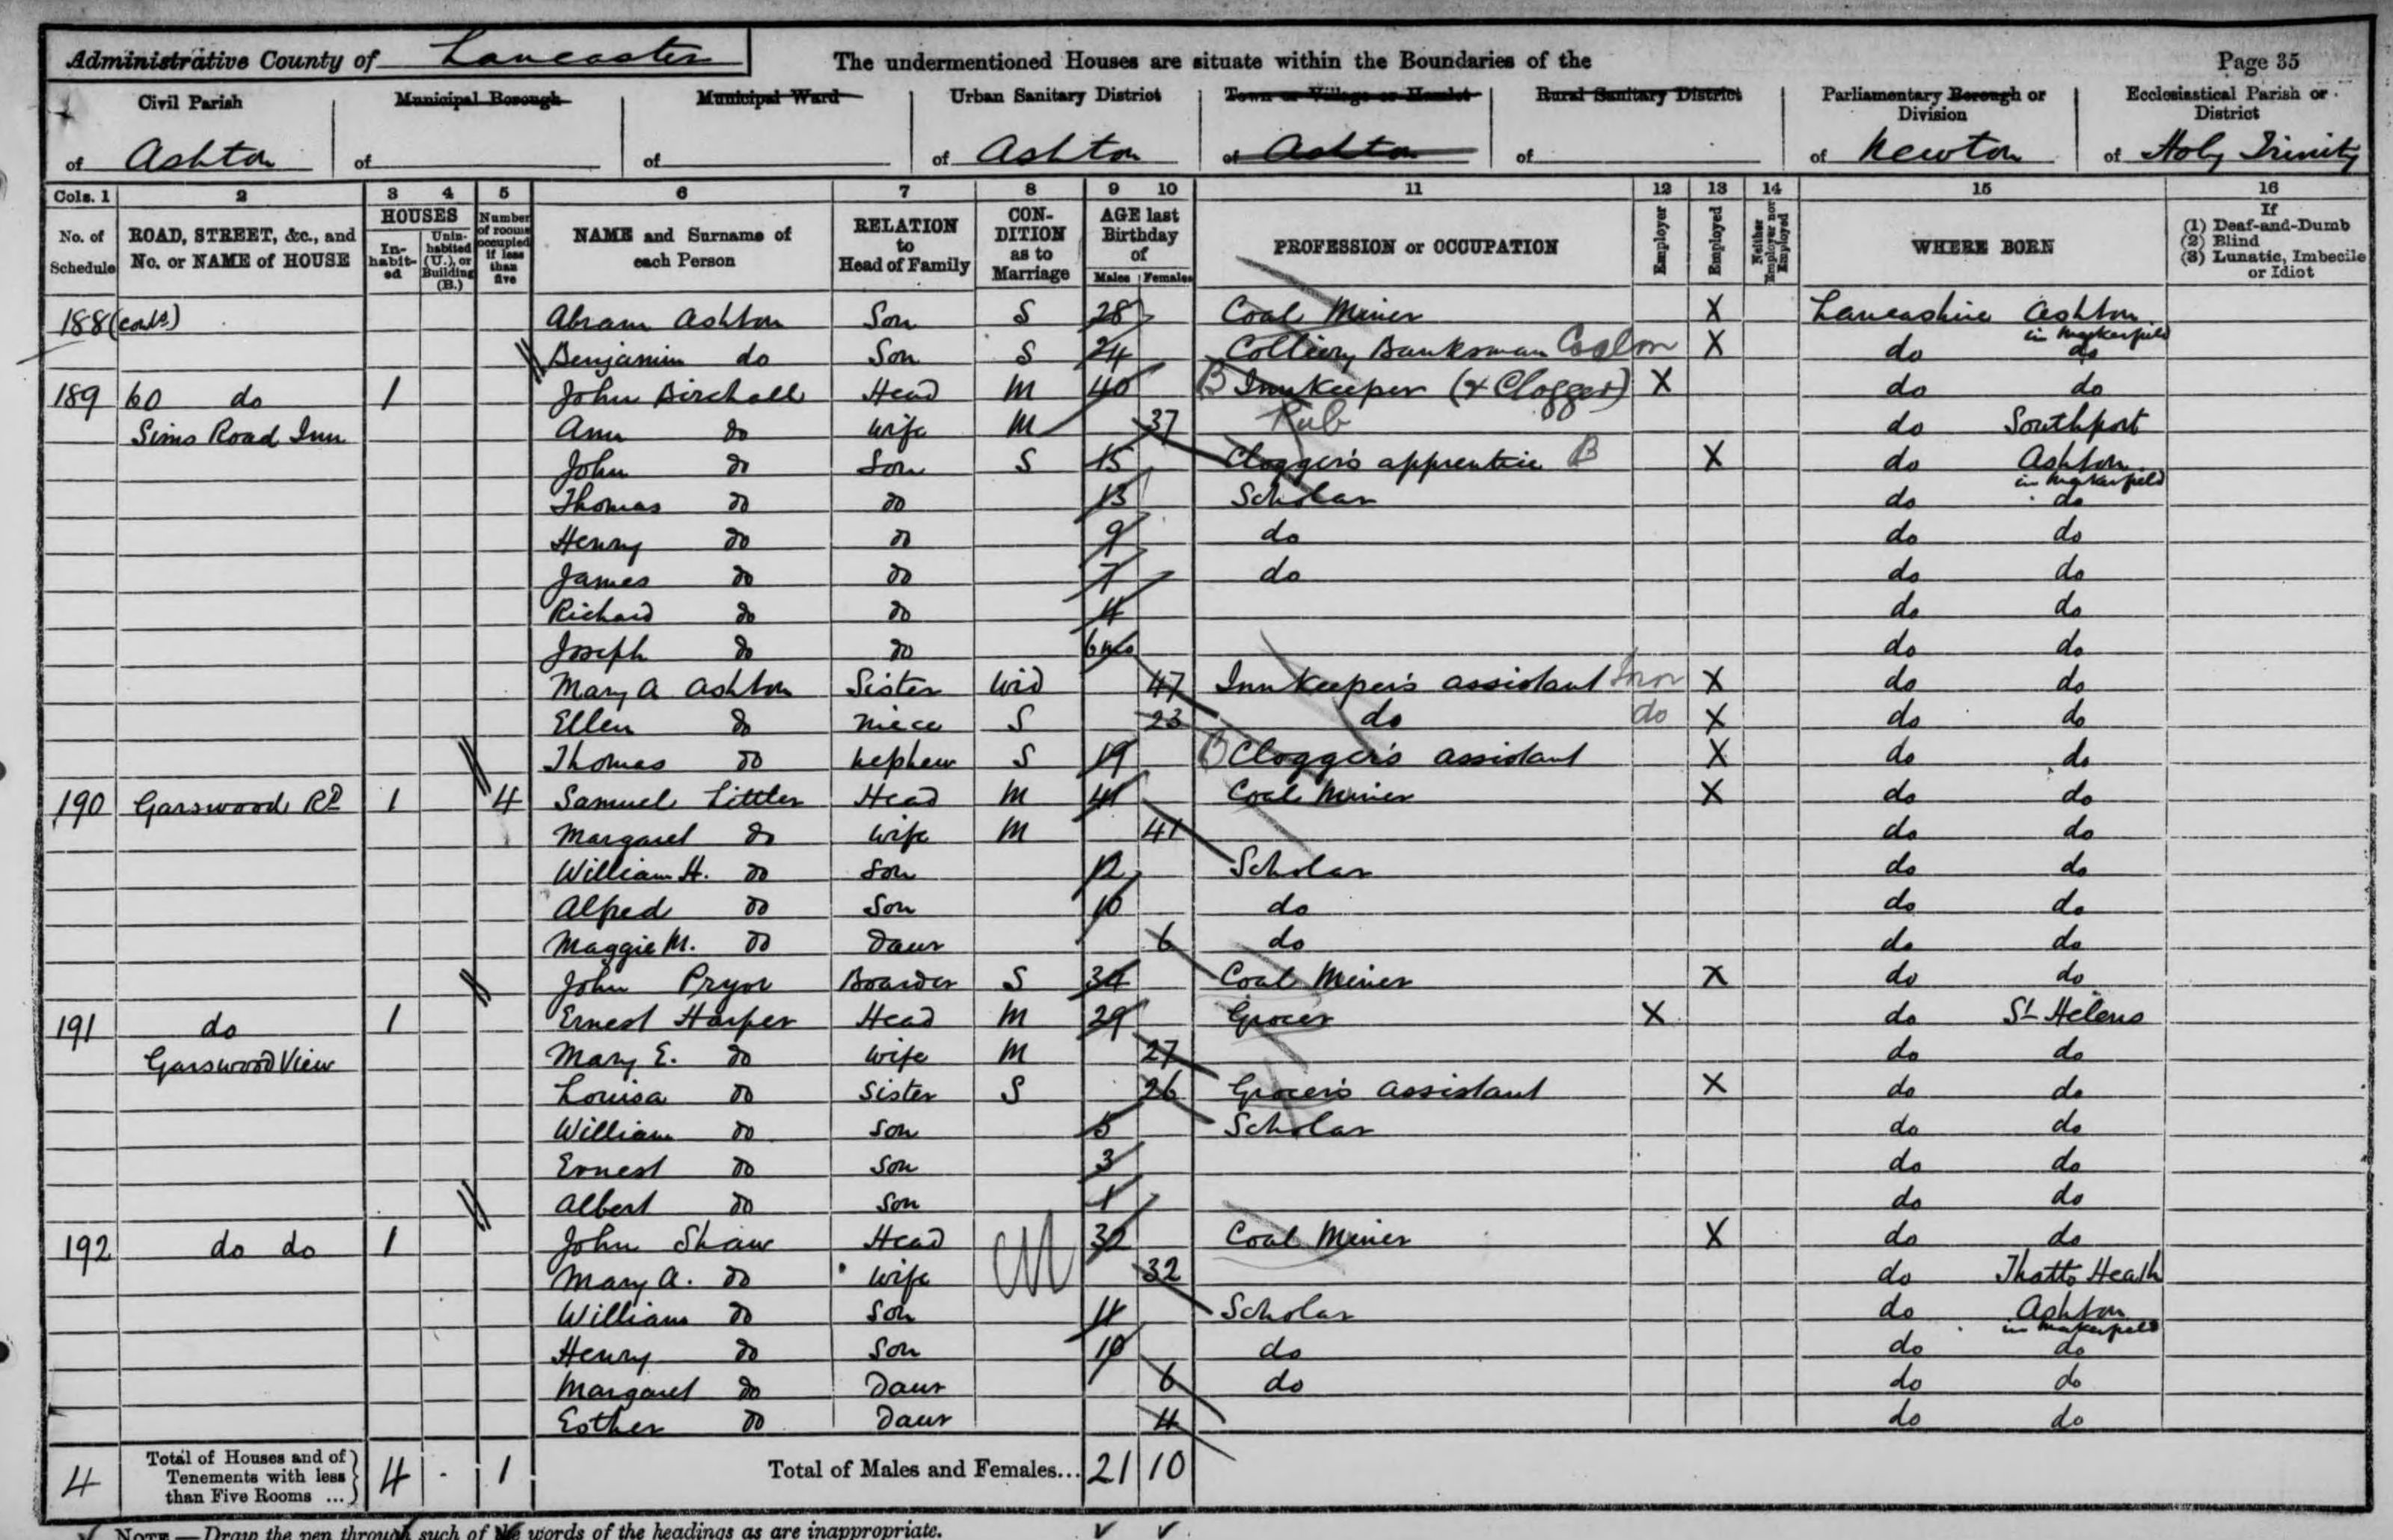 Administrative County of Lancaster The undermentioned Houses are situate within the Boundaries of the Page 35
Civil Parish Municipal Borough Municipal Ward Urban Sanitary District Town or Village or Hamlet Rural Sanitary District Parliamentary Borough or Division Ecclesiastical Parish or District
of Ashton of of of Ashton of Ashton of of Newton of Holy Trinity
Cols. 1 2 3 4 5 6 7 8 9 10 11 12 13 14 15 16
No. of Schedule ROAD, STREET, &c., and No. or NAME of HOUSE HOUSES Inhabited Uninhabited (U.), or Building (B.) Number of rooms occupied if less than five NAME and Surname of each Person RELATION to Head of Family CONDITION as to Marriage AGE last Birthday of Males Females PROFESSION or OCCUPATION Employer Employed Neither Employer nor Employed WHERE BORN If (1) Deaf-and-Dumb (2) Blind (3) Lunatic, Imbecile or Idiot
188 (contd) Abram Ashton Son S 28 Coal Miner X Lancashire Ashton in Makerfield
Benjamin do Son S 24 Colliery Banksman Coal m X do do
189 60 do 1 John Birchall Head M 40 B Innkeeper (& Clogger) X do do
Sims Road Inn Ann do Wife M 37 Pub do Southport
John do Son S 15 Clogger's apprentice B X do Ashton in Makerfield
Thomas do do 13 Scholar do do
Henry do do 9 do do do
James do do 7 do do do
Richard do do 4 do do
Joseph do do 6 mo do do
Mary A Ashton Sister Wid 47 Innkeeper's assistant Inn X do do
Ellen do Niece S 23 do do X do do
Thomas do Nephew S 19 B Clogger's assistant X do do
190 Garswood Rd 1 4 Samuel Littler Head M 41 Coal Miner X do do
Margaret do Wife M 41 do do
William H. do Son 12 Scholar do do
Alfred do Son 10 do do do
Maggie M. do Daur 6 do do do
John Pryor Boarder S 34 Coal Miner X do do
191 do 1 Ernest Harper Head M 29 Grocer X do St Helens
Garswood View Mary E. do Wife M 27 do do
Louisa do Sister S 26 Grocer's Assistant X do do
William do Son 5 Scholar do do
Ernest do Son 3 do do
Albert do Son 1 do do
192 do do 1 John Shaw Head M 32 Coal Miner X do do
Mary A. do Wife 32 do Thatto Heath
William do Son 11 Scholar do Ashton in Makerfield
Henry do Son 10 do do do
Margaret do Daur 6 do do do
Esther do Daur 4 do do
4 Total of Houses and of Tenements with less than Five Rooms ... 4 - 1 Total of Males and Females... 21 10
NOTE.—Draw the pen through such of the words of the headings as are inappropriate.